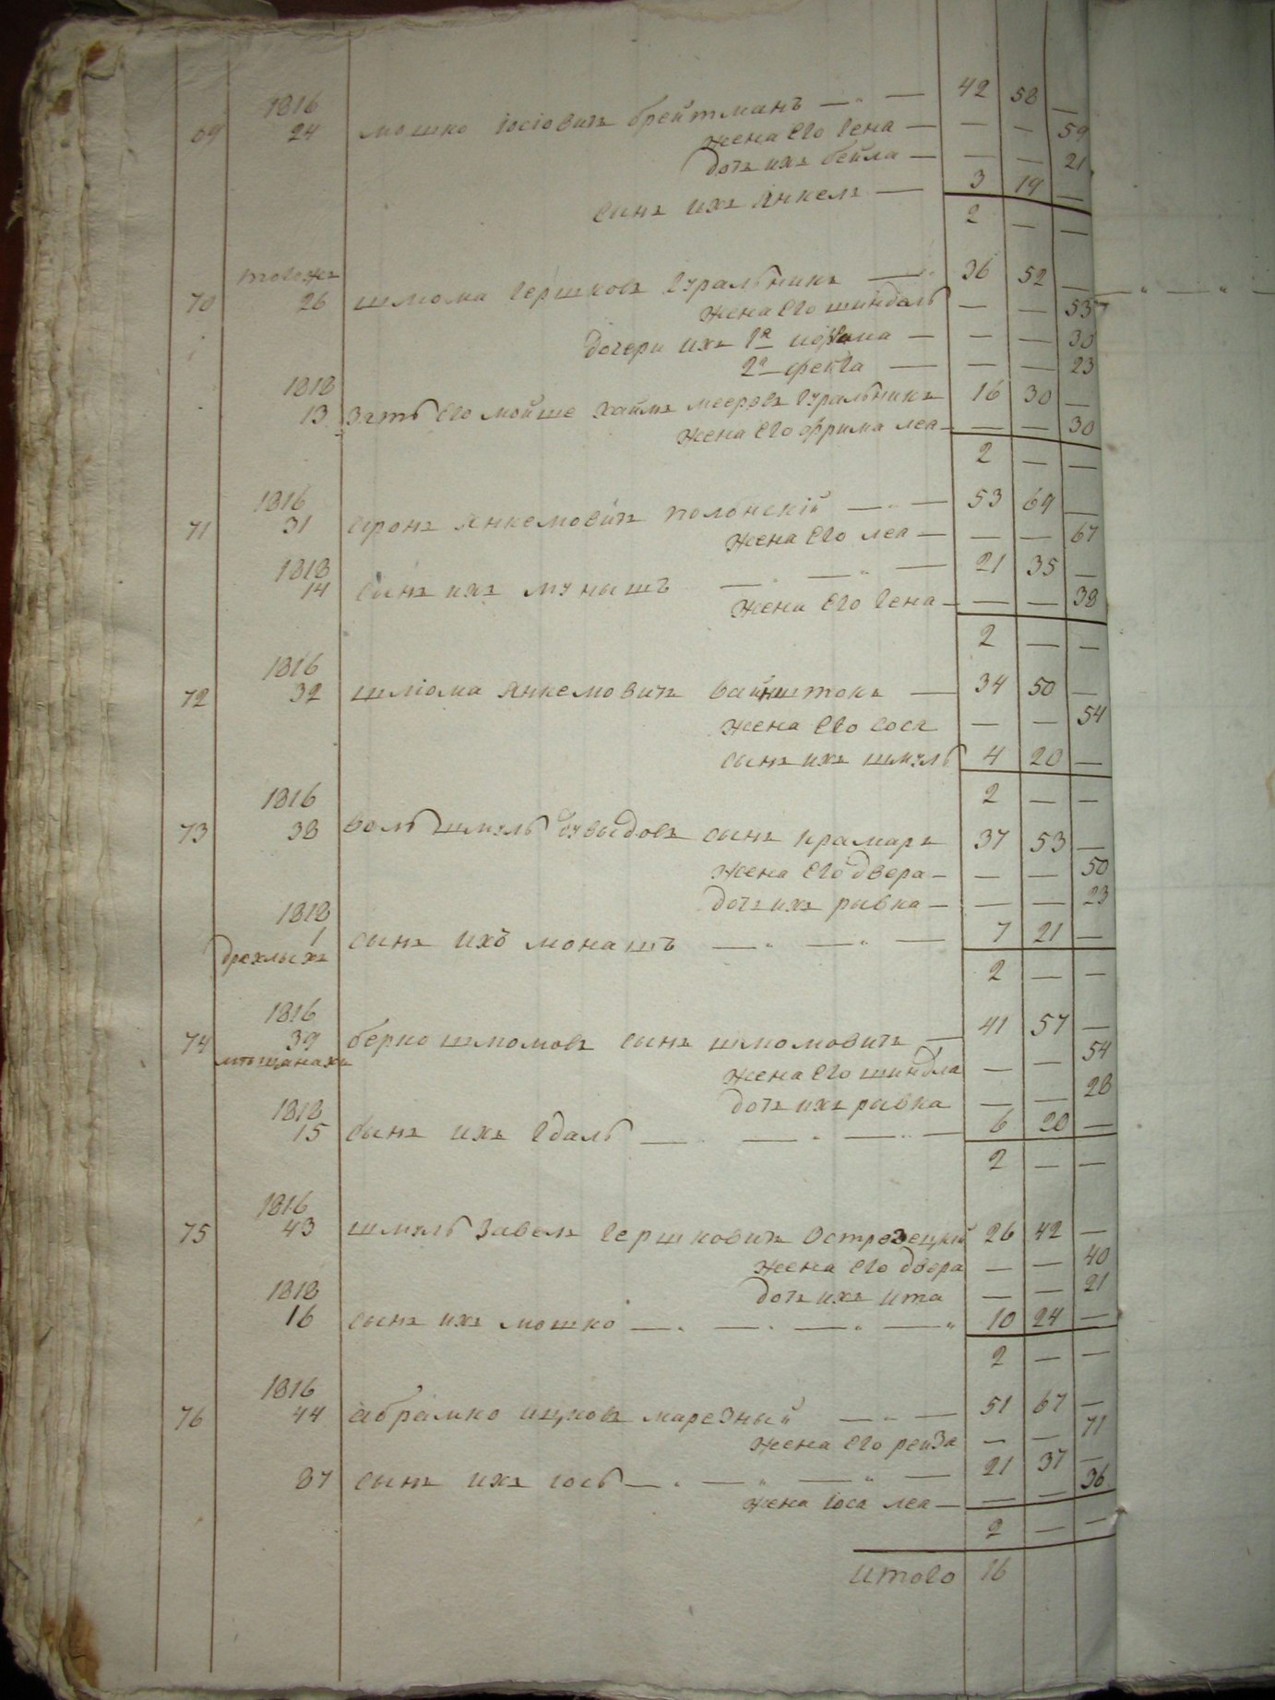 1816 42 58 —
69 24 мошко Iосiовичъ брейтманъ — „ —
жена его гена — — — 59
дочь ихъ бейла — — — 21
сынъ ихъ Янкель — 3 19 —
2 — —
тогожъ
70 26 шлiома гершковъ гуральникъ — „ 36 52 —
жена его шиндель — — 53
дочери ихъ 1я — — — 30
2я фейга — — — 23
1818
13 зять его мойше хаимъ мееровъ гуральникъ 16 30 —
жена его фрима леа — — — 30
2 — —
1816
71 31 аронъ Янкелювичъ полонскiй — „ — 53 69 —
жена его леа — — — 67
1818
14 сынъ ихъ мунышъ — „ — „ — 21 35 —
жена его гена — — — 38
2 — —
1816
72 32 шлiома Янкелювичъ вайнштокъ — 34 50 —
жена его сося — — 54
сынъ ихъ шмуль 4 20 —
1816 2 — —
73 38 волъ шмуль дувыдовъ сынъ крамаръ 37 53 —
жена его двера — — — 50
дочь ихъ рывка — — — 23
1818
1 сынъ ихъ монашъ — „ — „ — 7 21 —
дряхлыхъ
2 — —
1816
74 39 берко шлюмовъ сынъ шлюмовичъ — 41 57 —
мѣщанахъ
жена его шиндла — — 54
дочь ихъ рывка — — 28
1818
15 сынъ ихъ гдаль — „ — „ — „ — 6 20 —
2 — —
1816
75 43 шмуль завель гершковичъ Острозецкiй 26 42 —
жена его двера — — 40
1818 дочь ихъ ита — — 21
16 сынъ ихъ мошко — „ — „ — „ — „ 10 24 —
2 — —
1816
76 44 абрамко ицковъ марезный — „ — 51 67 —
жена его рейза — — 71
87 сынъ ихъ iось — „ — „ — „ — 21 37 —
жена iося леа — — — 36
2 — —
итого 16